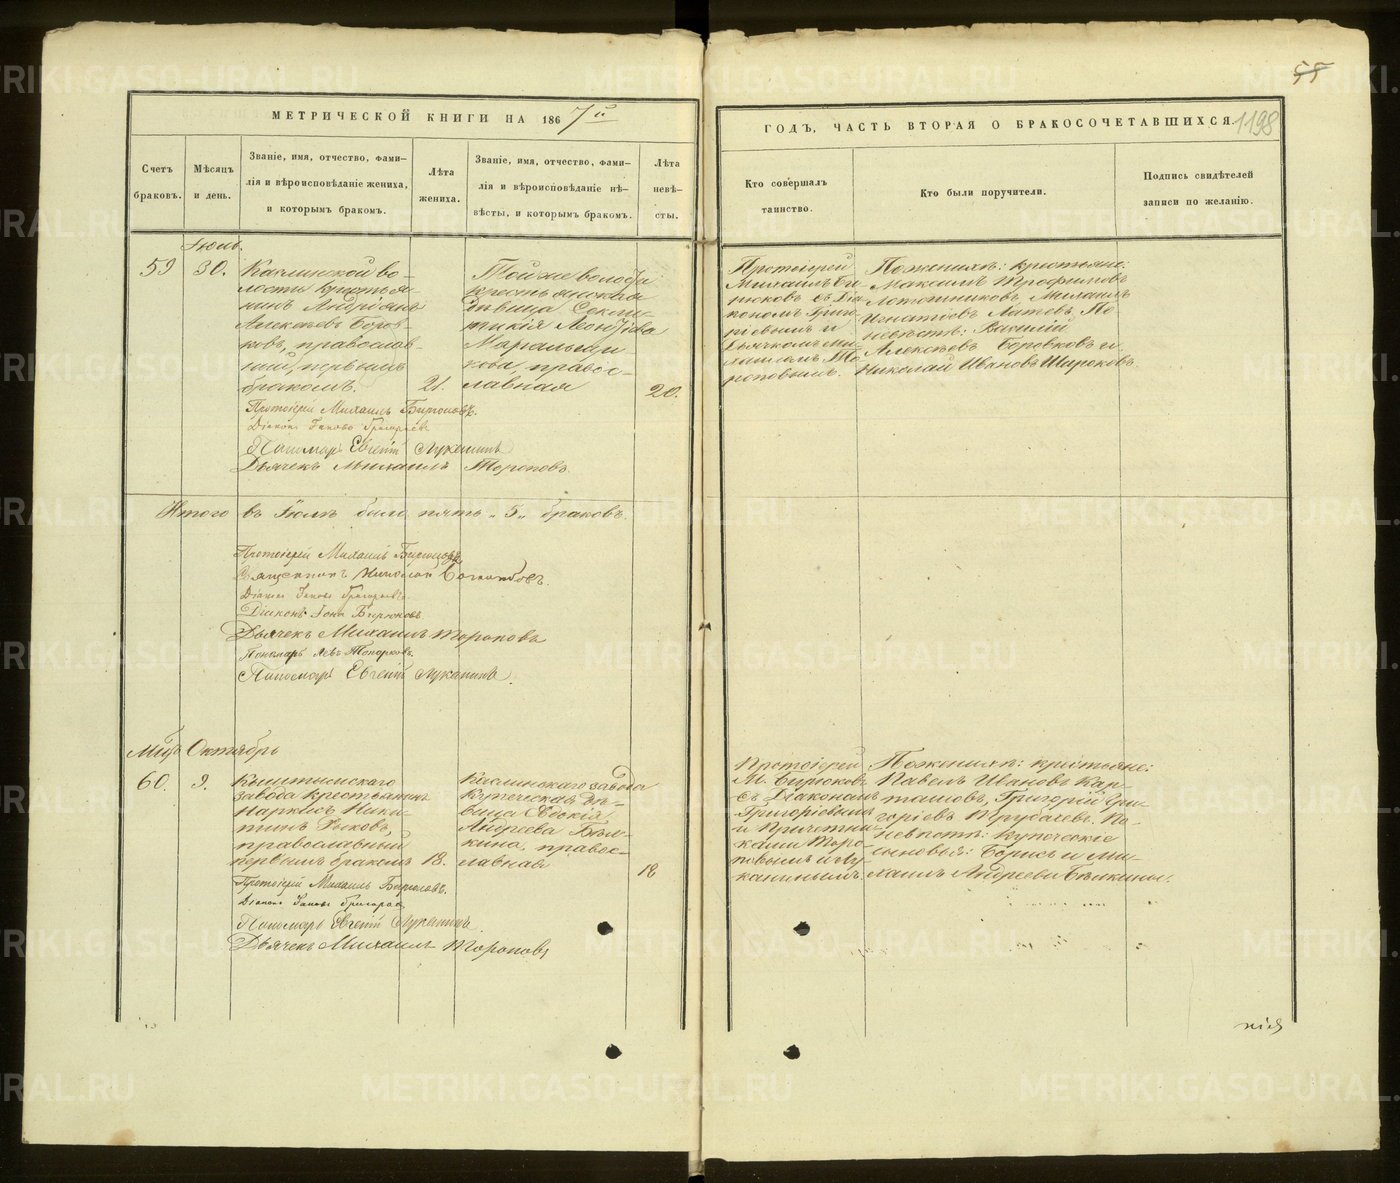 55
1198
МЕТРИЧЕСКОЙ КНИГИ НА 1867й
ГОДЪ, ЧАСТЬ ВТОРАЯ О БРАКОСОЧЕТАВШИХСЯ.
Счетъ
браковъ.
Мѣсяцъ
и день.
Званіе, имя, отчество, фами-
лія и вѣроисповѣданіе жениха,
и которымъ бракомъ.
Лѣта
жениха.
Званіе, имя, отчество, фами-
лія и вѣроисповѣданіе нѣ-
вѣсты, и которымъ бракомъ.
Лѣта
невѣ-
сты.
Кто совершалъ
таинство.
Кто были поручители.
Подпись свидѣтелей
записи по желанію.
Іюль.
59
30.
Каслинской во-
лости крестья-
нинъ Андріянъ
Алексѣевъ Боров-
ковъ, православ-
ный, первымъ
бракомъ.
21.
Той же волости
крестьянская
дѣвица Секлис-
тикія Леонтіева
Маральщи-
кова, правос-
лавная
20.
Протоіерей
Михаилъ Би-
рюковъ съ Діа
кономъ Григо-
ріевымъ и
Дьячкомъ Ми-
хаиломъ То-
роповымъ.
По женихѣ: крестьяне:
Максимъ Трофимовъ
Лотошниковъ, Михаилъ
Игнатіевъ Лаптевъ, По
невѣстѣ: Василій
Алексѣевъ Боровковъ и
Николай Ивановъ Широковъ.
Протоіерей Михаилъ Бирюковъ.
Діаконъ Іаковъ Григорьевъ
Пономарь Евгеній Луканинъ
Дьячекъ Михаилъ Тороповъ.
Итого въ Іюлѣ было пять „5„ браковъ.
Протоіерей Михаилъ Бирюковъ
Священникъ Николай
Діаконъ Іаковъ Григорьевъ
Діаконъ Іона Бирюковъ
Дьячекъ Михаилъ Тороповъ
Пономарь Левъ Топорковъ.
Пономарь Евгеній Луканинъ.
Мцъ Октябрь
60.
9.
Кыштымскаго
завода крестьянинъ
Наркисъ Ники-
тинъ Рыковъ,
православный
первымъ бракомъ
18.
Каслинскаго завода
Купеческая дѣ-
вица Евдокія
Андреева Бѣл-
кина, правос-
лавная
18
Протоіерей
М. Бирюковъ
съ Діакономъ
Григоріевымъ
и Причетни-
ками Торо-
повымъ и Лу-
канинымъ.
По женихѣ: крестьяне:
Павелъ Ивановъ Кар-
ташовъ, Григорій Гри-
горіевъ Трубачевъ. По
невѣстѣ: Купеческіе
сыновья: Борисъ и Ми-
хаилъ Андреевы Бѣлкины.
Протоіерей Михаилъ Бирюковъ.
Діаконъ Іаковъ Григорьевъ
Пономарь Евгеній Луканинъ.
Дьячекъ Михаилъ Тороповъ